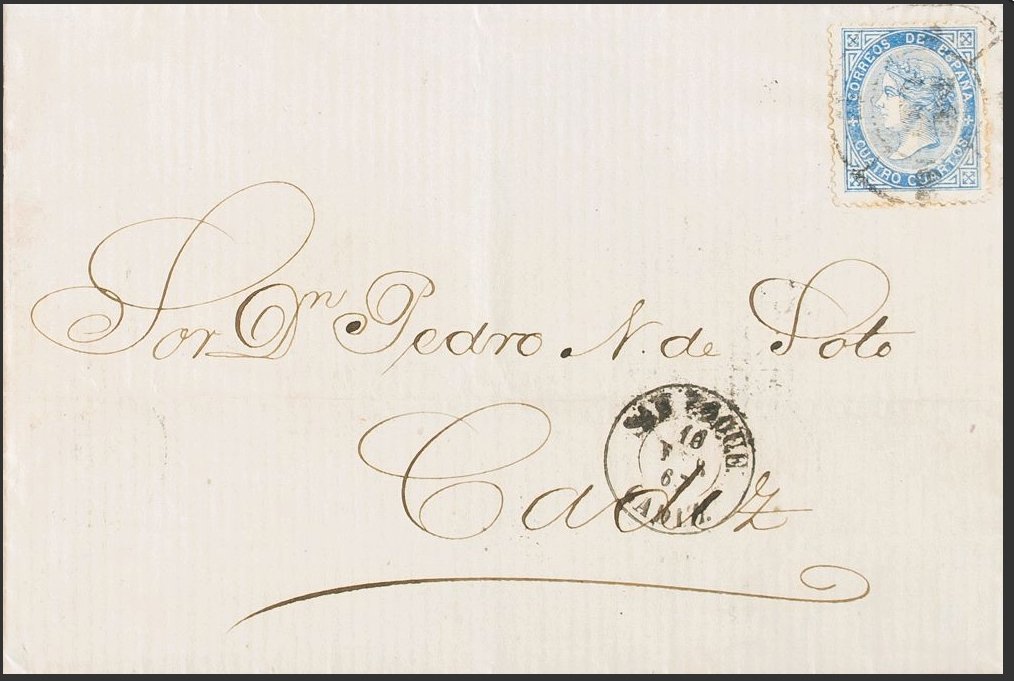 CORREOS DE ESPAÑA
CUATRO CUARTOS
Sor Dn Pedro N. de Soto
SAN ROQUE
16
67
CADIZ.
Cadiz